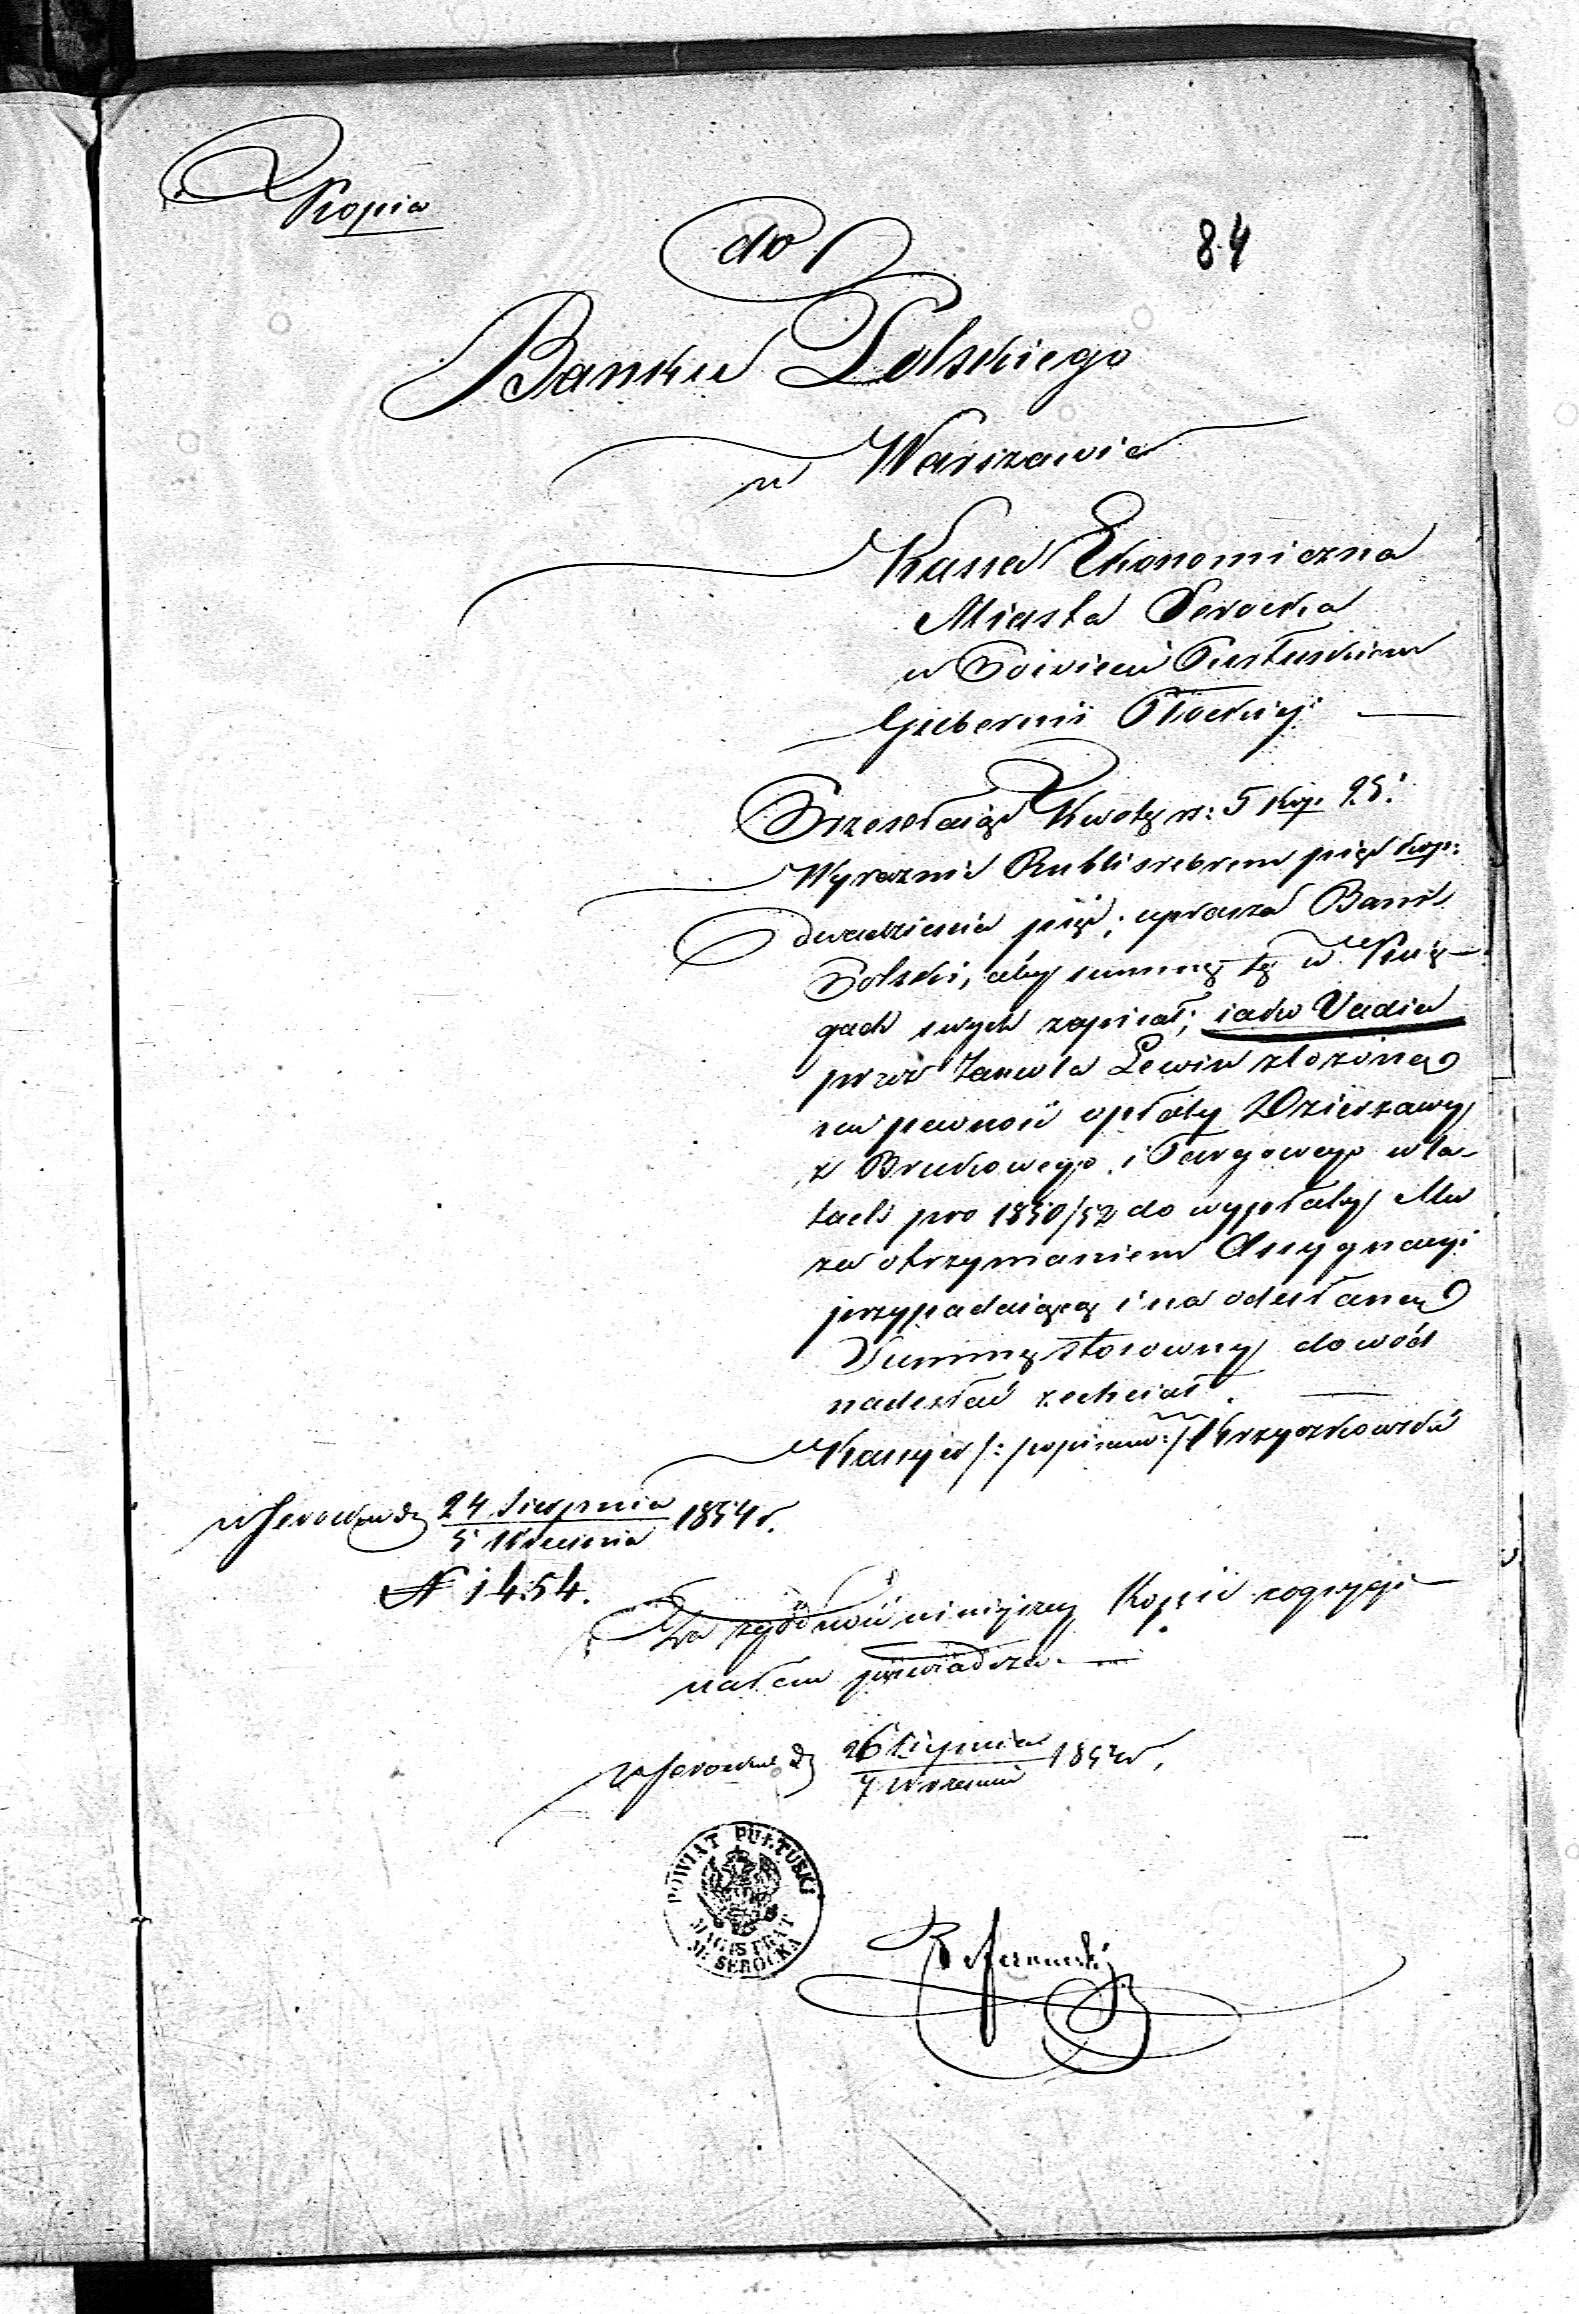 Kopia
84
do
Banku Polskiego
w Warszawie
Kassa Ekonomiczna
Miasta Serocka
w Powiecie Pułtuskiem
Gubernii Płockiej
Przesełaiąc Kwotę rs: 5 kop. 25.
Wyraznie Rubli srebrem pięć kop:
dwadzieścia pięć; uprasza Bank
Polski, aby summę tę w Księ-
gach swych zapisał; iako Vadia
przez Lewin złożoną
na pewność opłaty Dzierzawy
z Brukowego i Targowego w la-
tach pro 1850/52 do wypłaty Mu
za otrzymaniem Assygnacyi
przypadaiącą i na odesłaną
Summę stosowny dowód
nadesłać zechciał.
Kassyer /: popisano :/ Krzyczkowski
w Serocku d. 24 Sierpnia
5 Września 1854 r.
N 1454.
Za zgodność niniejszej Kopii z orygi-
nałem poswiadcza.
w Serocku d. 26 Sierpnia
7 Września 1854 r.
POWIAT PUŁTUSKI
MAGISTRAT
M. SEROCKA